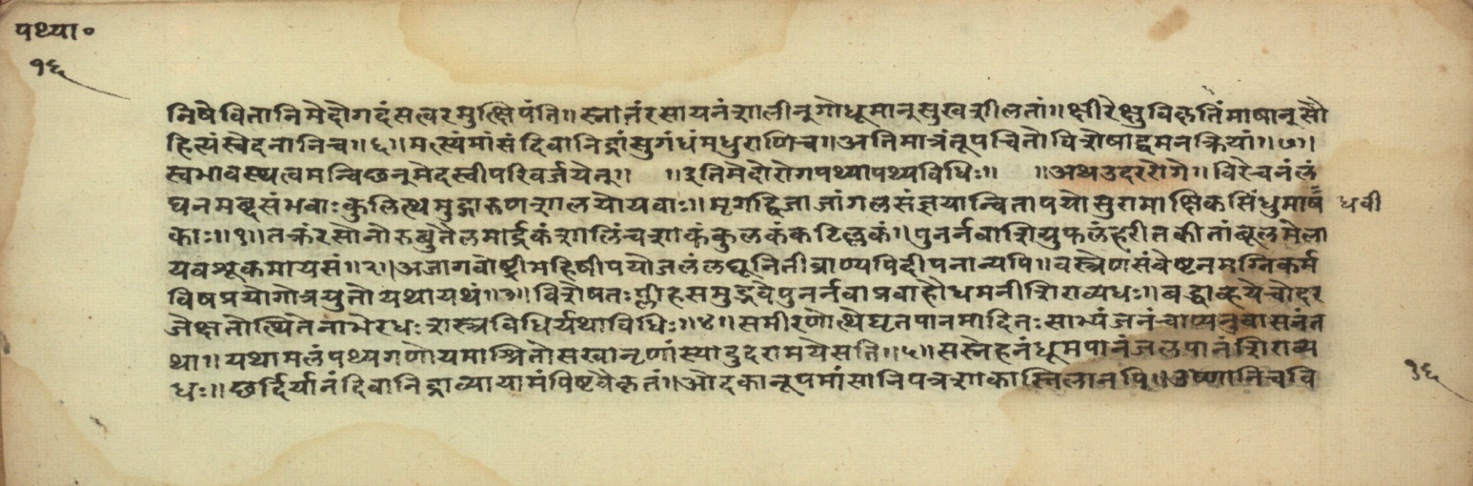 पथ्या॰
१६
निषेवितानिमेदोगदंसत्वरमुत्क्षिपंति॥स्नानंरसायनंशालीन्गोधूमान्सुखशीलतां॥क्षीरेक्षुविकृतिंमाषान्सौ
हित्यंस्वेदनानिच॥६॥मत्स्यंमांसंदिवानिद्रांसुगंधंमधुराणिच॥अतिमात्रंतूपचितोविशेषाद्वमनक्रियां॥७॥
स्वभावस्थत्वमन्विछन्मेदस्वीपरिवर्जयेत्॥ ॥इतिमेदोरोगपथ्यापथ्यविधिः॥ ॥अथउदररोगे॥विरेचनंलं
घनमब्दसंभवाःकुलित्थमुद्गारुणशालयोयवाः॥मृगद्विजाजांगलसंज्ञयान्वितापयोसुरामाक्षिकसिंधुमाष धवी
काः॥१॥तक्रंरसोनोरुबुतैलमार्द्रकंशालिंचशाकंकुलकंकटिल्लकं॥पुनर्नवाशिग्रुफलंहरीतकीतांबूलमेला
यवशूकमायसं॥२॥अजागवोष्ट्रीमहिषीपयोजलंलघूनितीव्राण्यपिदीपनान्यपि॥वस्त्रेणसंवेष्टनमग्निकर्म
विषप्रयोगोत्रयुतोयथायथं॥३॥विशेषतःप्लीहसमुद्भवेपुनर्नवाप्रवाहौधमनीशिराव्यधः॥बद्धाव्हयेचोदर
जेक्षतोत्थितेनाभेरधःशस्त्रविधिर्यथाविधिः॥४॥समीरणोत्थेघृतपानमादितःसाभ्यंजनंचाप्यनुवासनंत
था॥यथामलंपथ्यगणोयमाश्रितोसखानृणांस्यादुदरामयेसति॥५॥सस्नेहनंधूमपानंजलपानंशिराव्य
धः॥छर्दिर्यानंदिवानिद्राव्यायामंपिष्टवैकृतं॥औदकानूपमांसानिपत्रशाकास्तिलानपि॥उष्णानिचवि
१६